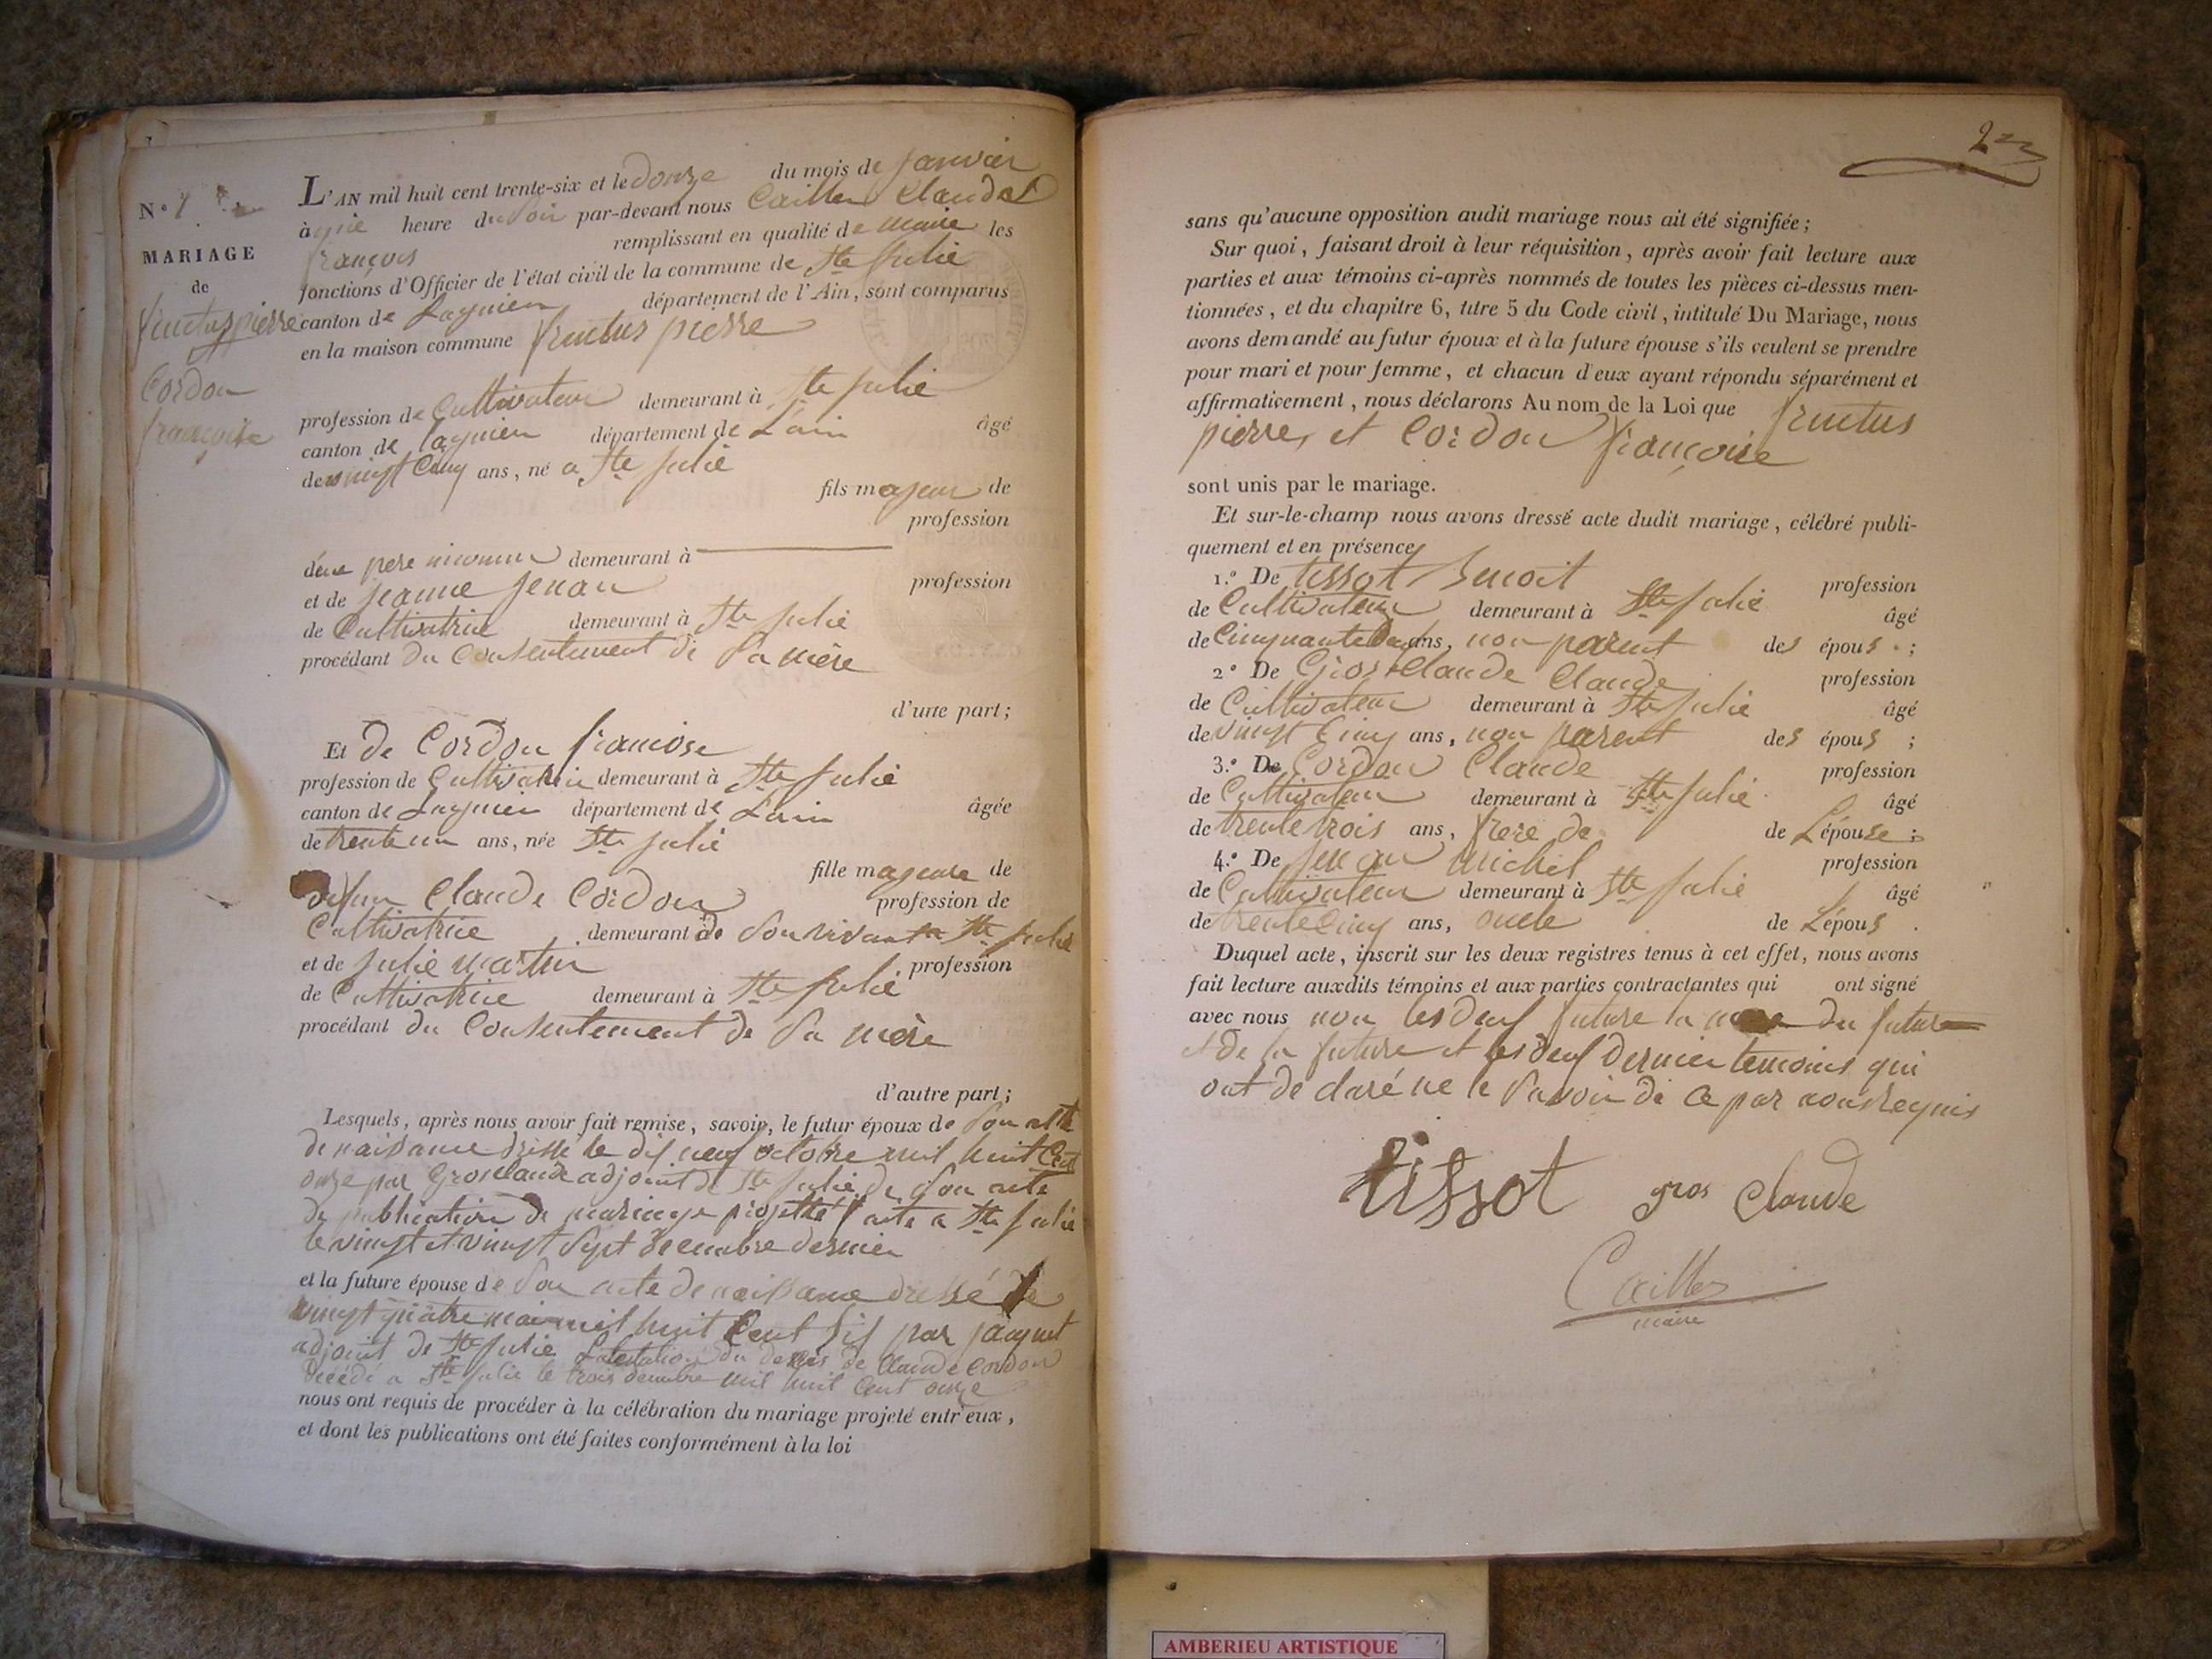 N.º 1
MARIAGE
de
fructus pierre
Cordon
françoise
L'AN mil huit cent trente-six et le douze du mois de janvier
à une heure du soir par-devant nous Cailler Claude
françois remplissant en qualité de maire les
fonctions d'Officier de l'état civil de la commune de Ste Julie
canton de Lagnieu département de l'Ain, sont comparus
en la maison commune fructus pierre
profession de Cultivateur demeurant à Ste Julie
canton de lagnieu département de L'ain âgé
de vingt Cinq ans, né a Ste Julie
fils majeur de
profession
de père inconnu demeurant à
et de jeanne jenan profession
de Cultivatrice demeurant à Ste Julie
procédant du Consentement de Sa mère
d'une part;
Et de Cordon francoise
profession de Cultivatrice demeurant à Ste Julie
canton de Lagnieu département de L'ain âgée
de trente un ans, née Ste Julie
fille majeure de
defun Claude Cordon profession de
Cultivatrice demeurant de Son vivant a Ste Julie
et de Julie martin profession
de Cultivatrice demeurant à Ste Julie
procédant du Consentement de Sa mère
d'autre part;
Lesquels, après nous avoir fait remise, savoir, le futur époux de Son acte
de naissance dressé le dix neuf octobre mil huit Cent
onze par Grosclaude adjoint de Ste Julie, de Son acte
de publication de mariage projetté faite a Ste Julie
le vingt et vingt Sept decembre dernier
et la future épouse de Son acte de naissance dressé le
vingt quatre mai mil huit Cent Six par jacquet
adjoint de Ste Julie Latestation du deces de Claude Cordon
Décédé a Ste Julie le trois decembre mil huit Cent onze
nous ont requis de procéder à la célébration du mariage projeté entr'eux,
et dont les publications ont été faites conformément à la loi
2
sans qu'aucune opposition audit mariage nous ait été signifiée;
Sur quoi, faisant droit à leur réquisition, après avoir fait lecture aux
parties et aux témoins ci-après nommés de toutes les pièces ci-dessus men-
tionnées, et du chapitre 6, titre 5 du Code civil, intitulé Du Mariage, nous
avons demandé au futur époux et à la future épouse s'ils veulent se prendre
pour mari et pour femme, et chacun d'eux ayant répondu séparément et
affirmativement, nous déclarons Au nom de la Loi que fructus
pierre, et Cordon françoise
sont unis par le mariage.
Et sur-le-champ nous avons dressé acte dudit mariage, célébré publi-
quement et en présence
1.º De tissot Benoit profession
de Cultivateur demeurant à Ste Julie âgé
de Cinquante ans, non parent des épous;
2º De Gros Claude Claude profession
de Cultivateur demeurant à Ste Julie âgé
de vingt Cinq ans, non parent des épous;
3.º De Cordon Claude profession
de Cultivateur demeurant à Ste Julie âgé
de trente trois ans, frere de de L'épouse;
4.º De jenan michel profession
de Cultivateur demeurant à Ste Julie âgé
de trente Cinq ans, oncle de L'épous.
Duquel acte, inscrit sur les deux registres tenus à cet effet, nous avons
fait lecture auxdits témoins et aux parties contractantes qui ont signé
avec nous non les deux future la mere du future
et de la future et les deux dernier temoins qui
ont de claré ne le Savoir de Ce par nous requis
tissot gros claude
Cailler
maire
AMBERIEU ARTISTIQUE